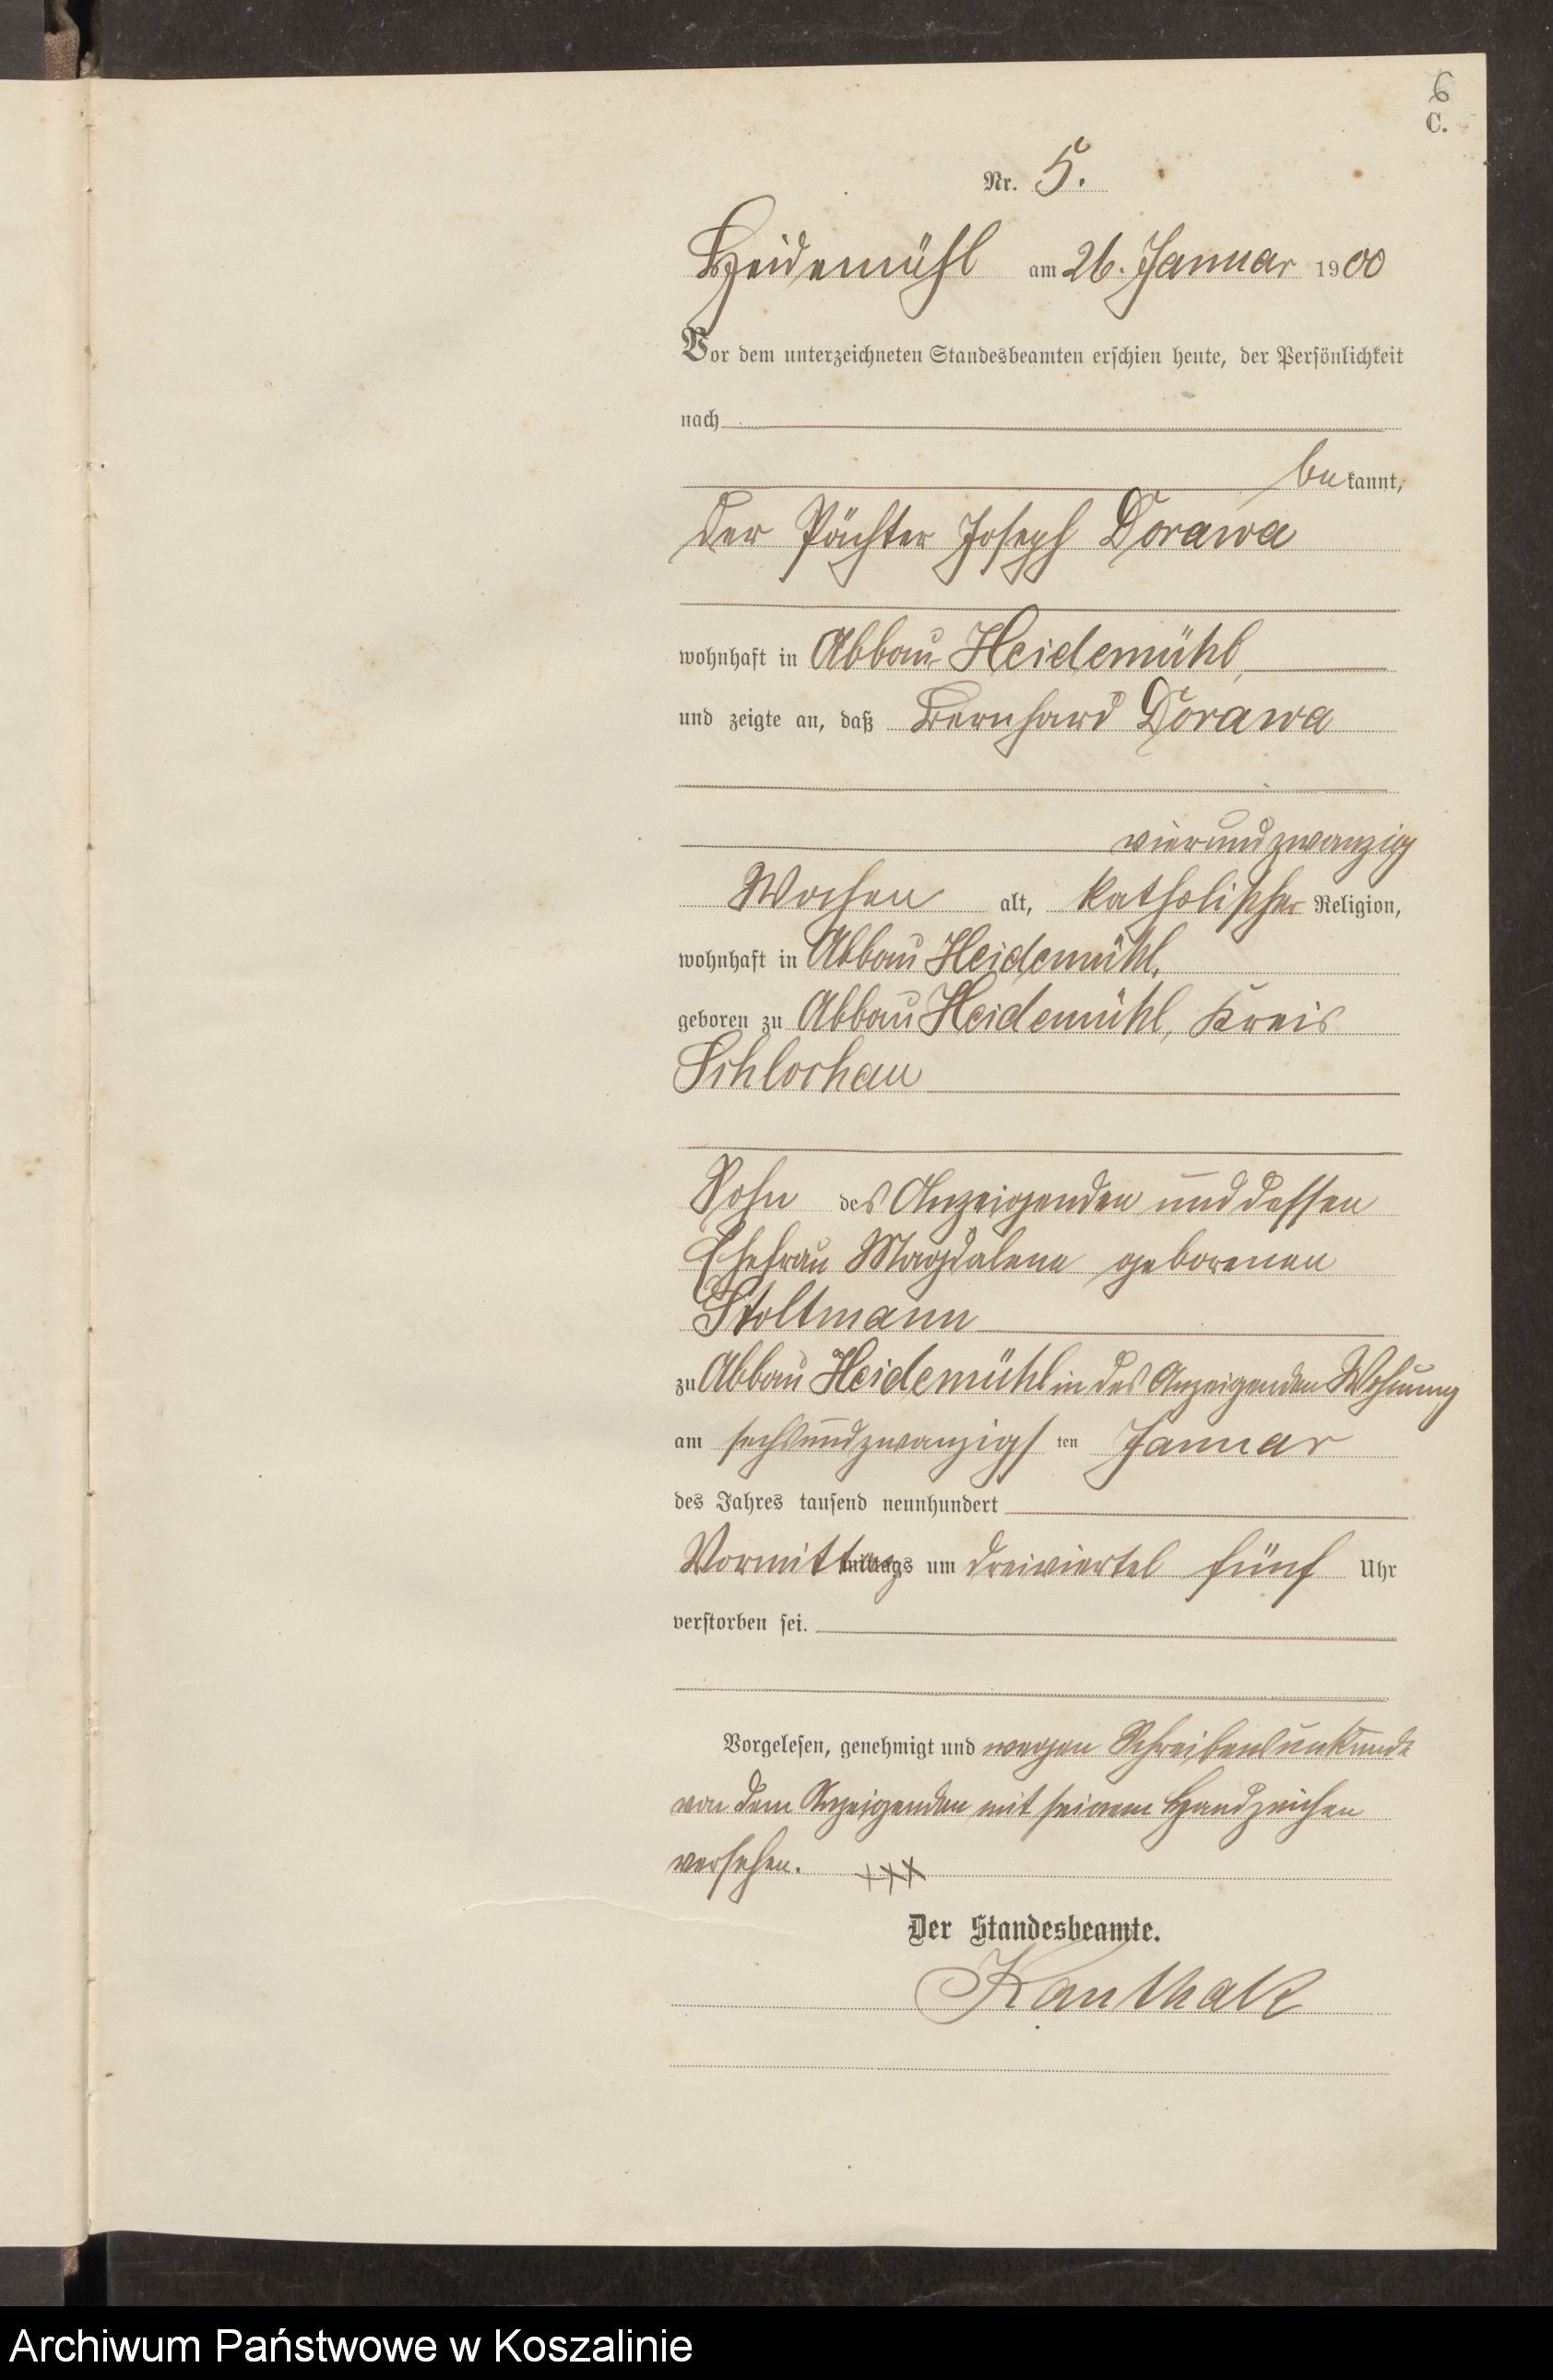 6
C.
Nr. 5.
Heidemühl am 26. Januar 1900
Vor dem unterzeichneten Standesbeamten erschien heute, der Persönlichkeit
nach
bekannt,
der Pächter Joseph Dorawa
wohnhaft in Abbau Heidemühl,
und zeigte an, daß Bernhard Dorawa
vierundzwanzig
Wochen alt, katholischer Religion,
wohnhaft in Abbau Heidemühl,
geboren zu Abbau Heidemühl, Kreis
Schlochau
Sohn des Anzeigenden und dessen
Ehefrau Magdalena geborenen
Stoltmann
zu Abbau Heidemühl in des Anzeigenden Wohnung
am sechsundzwanzigsten Januar
des Jahres tausend neunhundert
Vormittags um dreiviertel fünf Uhr
verstorben sei.
Vorgelesen, genehmigt und wegen Schreibensunkunde
von dem Anzeigenden mit seinem Handzeichen
versehen. +++
Der Standesbeamte.
Kanthak
Archiwum Państwowe w Koszalinie